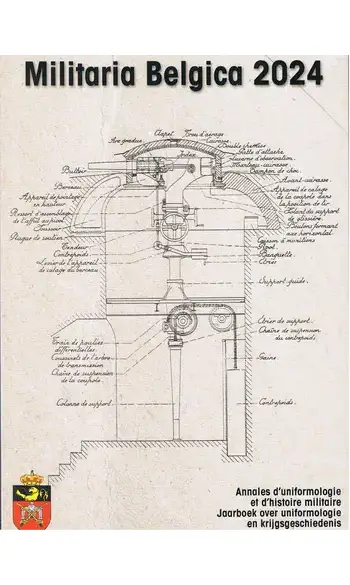 Militaria Belgica 2024
Chapel
Trou d'aérage
Arc gradué
Cuirasse
Double cheville
Patte d'attache
Index
Lucarne d'observation
Manteau-cuirasse
Tampon de choc
Bulloir
Avant-cuirasse
Berceau
Appareil de calage
de la coupole dans
la position de tir
Appareil de pointage
en hauteur
Volant du support
de glissière
Ressort d'assemblage
de l'affût au pivot
Boulons formant
axe horizontal
Plaque de soutien
Caisson à munitions
Tendeur
Pivot
Contrepoids
Banquette
Levier de l'appareil
de calage du berceau
Support-guide
Etrier de support
Chaîne de suspension
du contrepoids
Train de poulies
différentielles
Coussinets de l'arbre
de transmission
Gaine
Chaîne de suspension
de la coupole
Colonne de support
Contrepoids
Annales d'uniformologie
et d'histoire militaire
Jaarboek over uniformologie
en krijgsgeschiedenis